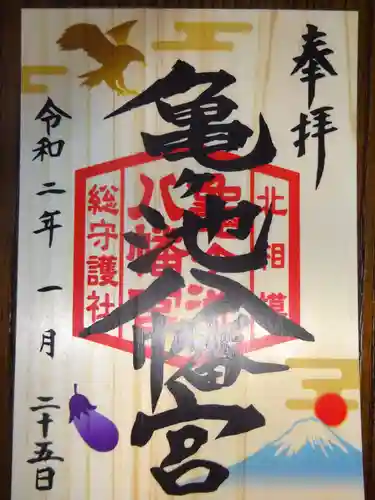 奉拝
亀ヶ池八幡宮
北相模
亀ヶ池
八幡宮
総守護社
令和二年 一月 二十五日